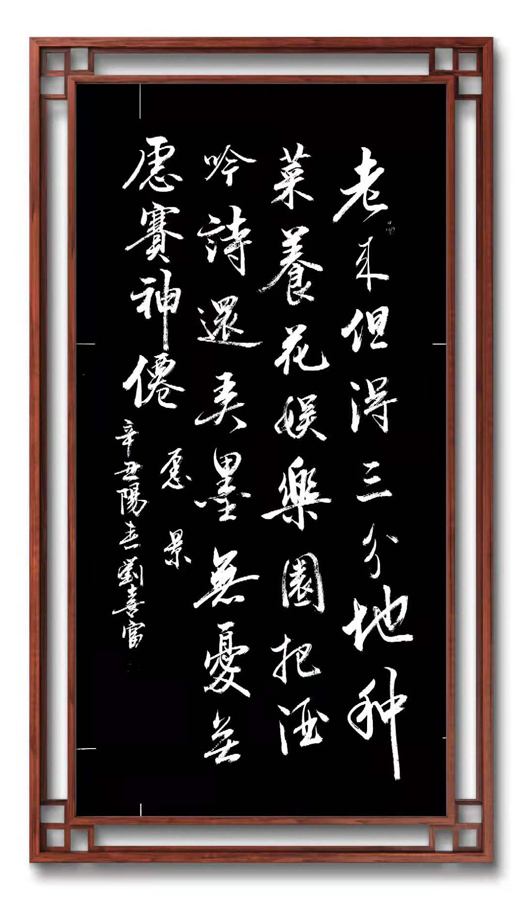 老来但得三分地种
菜養花娱樂園把酒
吟詩還弄墨無憂無
愿賽神僊
愿景
辛丑陽春劉喜富